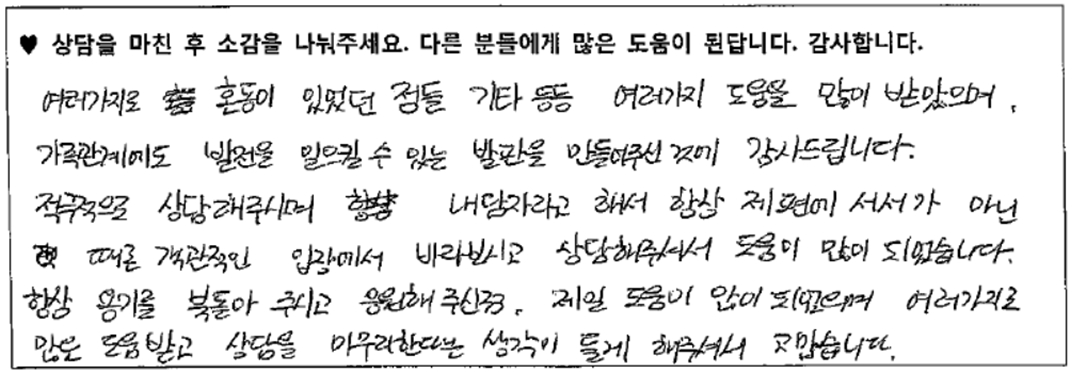 ♥ 상담을 마친 후 소감을 나눠주세요. 다른 분들에게 많은 도움이 된답니다. 감사합니다.
여러가지로 혼동이 있었던 점들 기타 등등 여러가지 도움을 많이 받았으며,
가족관계에도 발전을 일으킬 수 있는 발판을 만들어주신 것에 감사드립니다.
적극적으로 상담해주시며 내담자라고 해서 항상 제편에 서서가 아닌
때론 객관적인 입장에서 바라보시고 상담해주셔서 도움이 많이 되었습니다.
항상 용기를 북돋아 주시고 응원해 주신점. 제일 도움이 많이 되었으며 여러가지로
많은 도움받고 상담을 마무리한다는 생각이 들게 해주셔서 고맙습니다.